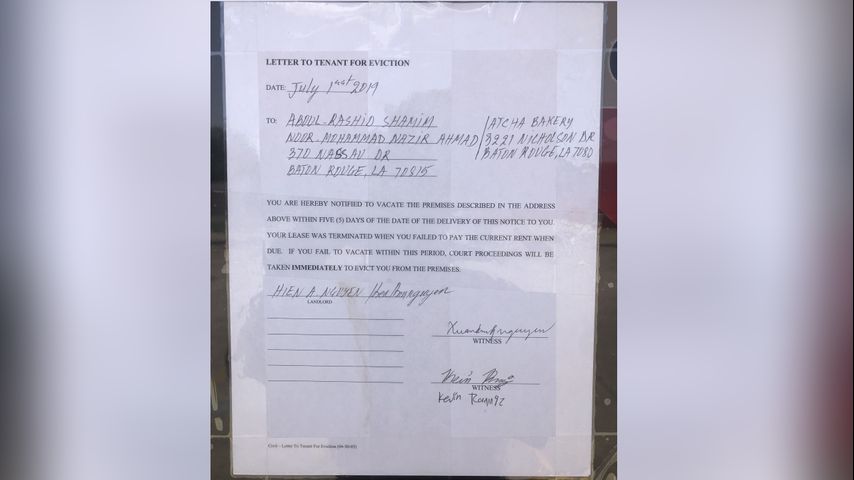 LETTER TO TENANT FOR EVICTION
DATE: July 1st 2019
TO: ABDUL-RASHID SHAMIM
NOOR-MOHAMMAD NAZIR AHMAD
370 NASSAU DR
BATON ROUGE, LA 70815
ATCHA BAKERY
3221 NICHOLSON DR
BATON ROUGE, LA 7080
YOU ARE HEREBY NOTIFIED TO VACATE THE PREMISES DESCRIBED IN THE ADDRESS
ABOVE WITHIN FIVE (5) DAYS OF THE DATE OF THE DELIVERY OF THIS NOTICE TO YOU.
YOUR LEASE WAS TERMINATED WHEN YOU FAILED TO PAY THE CURRENT RENT WHEN
DUE. IF YOU FAIL TO VACATE WITHIN THIS PERIOD, COURT PROCEEDINGS WILL BE
TAKEN IMMEDIATELY TO EVICT YOU FROM THE PREMISES.
HIEN A. NGUYEN
LANDLORD
WITNESS
WITNESS
Kevin
Civil - Letter To Tenant For Eviction